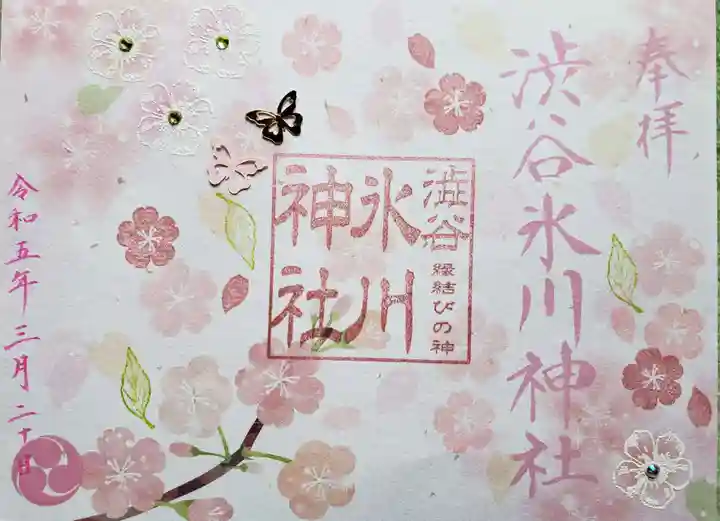 奉拝
渋谷氷川神社
澁谷
氷川
神社
縁結びの神
令和五年三月二十日